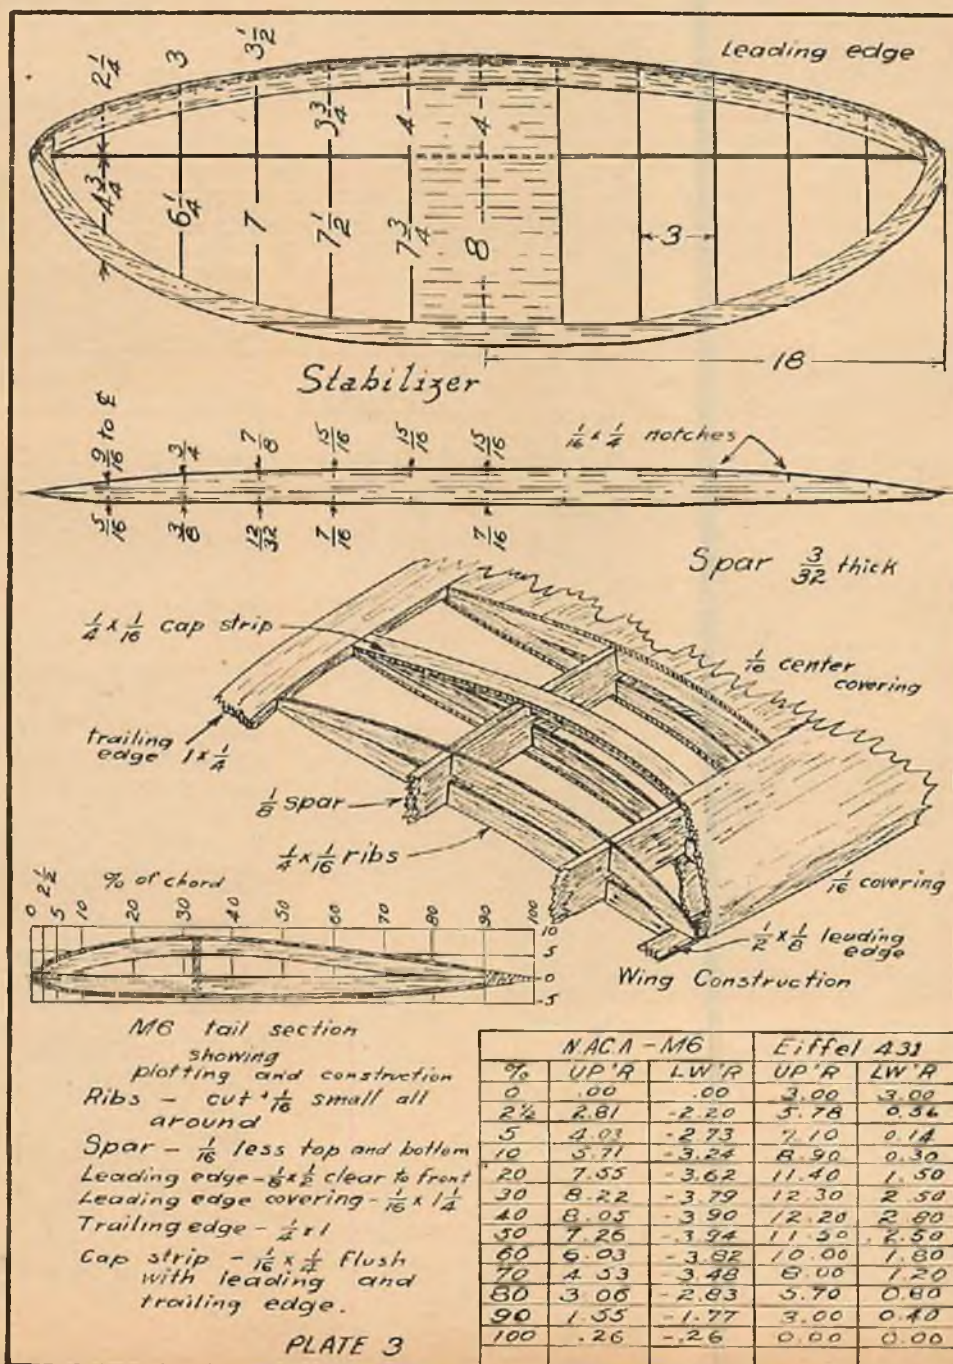 Leading edge
2 1/4
3
3 1/2
3 3/4
4
4
4 3/4
6 1/4
7
7 1/2
7 3/4
8
3
18
Stabilizer
9/16 to ℄
3/4
7/8
15/16
15/16
15/16
1/16 x 1/4 notches
5/16
3/8
13/32
7/16
7/16
Spar 3/32 thick
1/4 x 1/16 cap strip
1/16 center
covering
trailing
edge 1 x 1/4
1/8 spar
1/4 x 1/16 ribs
1/16 covering
1/2 x 1/8 leading
edge
Wing Construction
% of chord
0 2 1/2 5 10 20 30 40 50 60 70 80 90 100
10
5
0
-5
M6 tail section
showing
plotting and construction
Ribs - cut 1/16 small all
around
Spar - 1/16 less top and bottom
Leading edge - 1/8 x 1/2 clear to front
Leading edge covering - 1/16 x 1 1/4
Trailing edge - 1/4 x 1
Cap strip - 1/16 x 1/4 flush
with leading and
trailing edge.
PLATE 3
N.A.C.A - M6 Eiffel 431
% UP'R LW'R UP'R LW'R
0 .00 .00 3.00 3.00
2 1/2 2.81 -2.20 5.78 0.56
5 4.03 -2.73 7.10 0.14
10 5.71 -3.24 8.90 0.30
20 7.55 -3.62 11.40 1.50
30 8.22 -3.79 12.30 2.50
40 8.05 -3.90 12.20 2.80
50 7.26 -3.94 11.50 2.50
60 6.03 -3.82 10.00 1.80
70 4.53 -3.48 8.00 1.20
80 3.06 -2.83 5.70 0.80
90 1.55 -1.77 3.00 0.40
100 .26 -.26 0.00 0.00